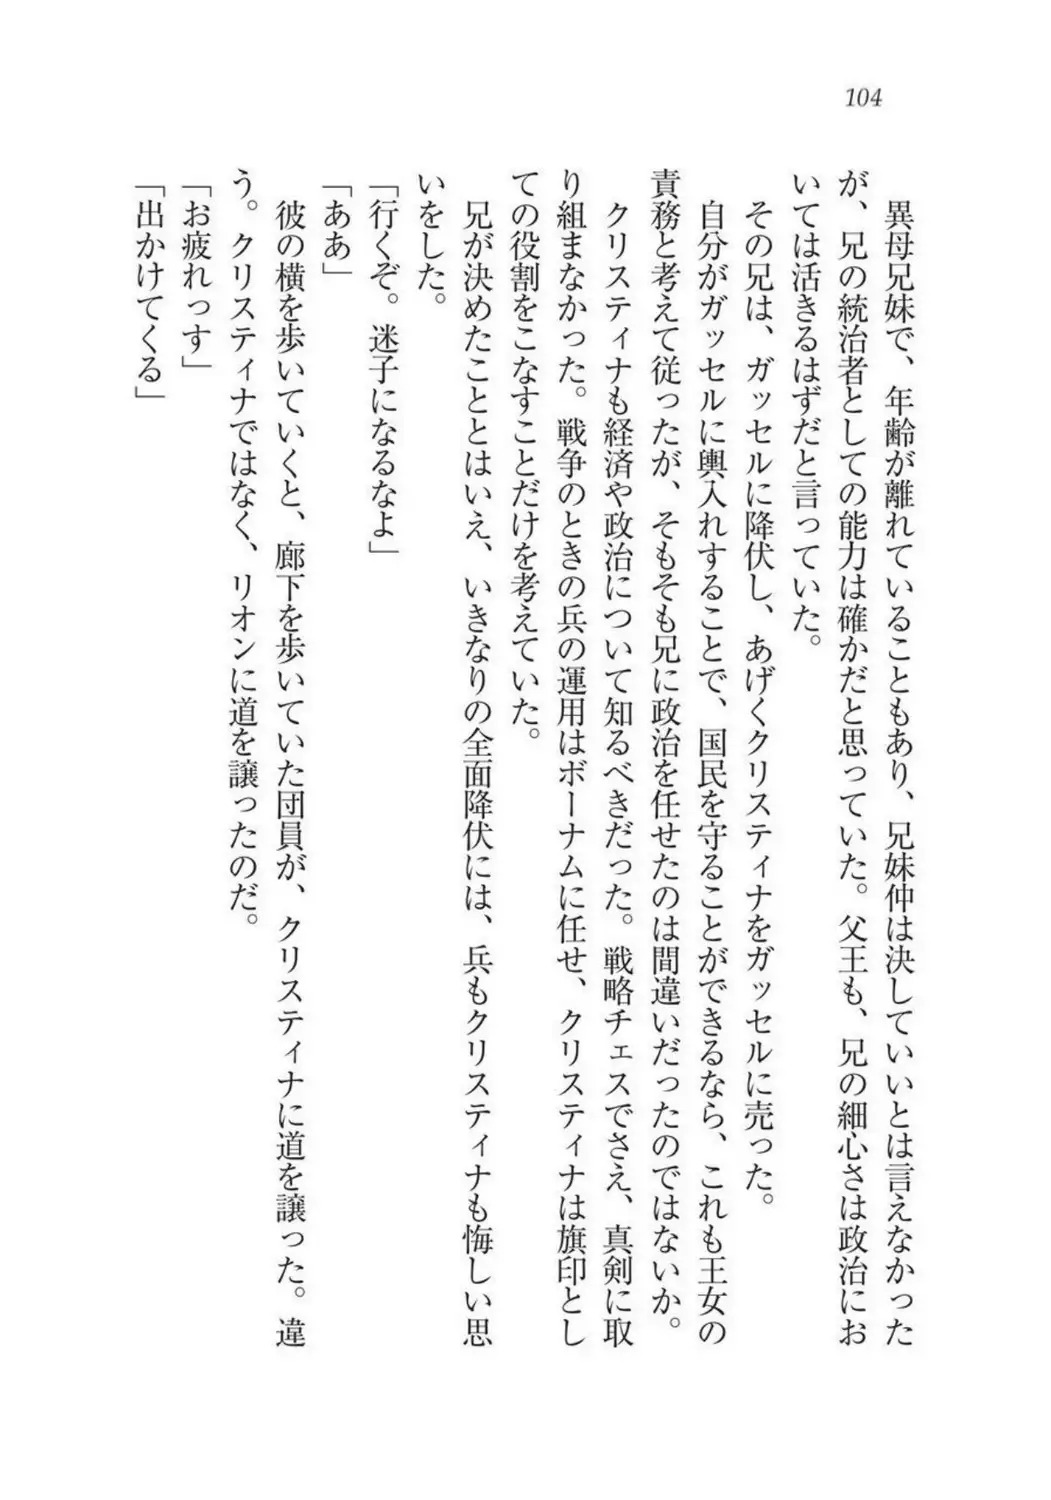 104
　異母兄妹で、年齢が離れていることもあり、兄妹仲は決していいとは言えなかった
が、兄の統治者としての能力は確かだと思っていた。父王も、兄の細心さは政治にお
いては活きるはずだと言っていた。
　その兄は、ガッセルに降伏し、あげくクリスティナをガッセルに売った。
　自分がガッセルに輿入れすることで、国民を守ることができるなら、これも王女の
責務と考えて従ったが、そもそも兄に政治を任せたのは間違いだったのではないか。
　クリスティナも経済や政治について知るべきだった。戦略チェスでさえ、真剣に取
り組まなかった。戦争のときの兵の運用はボーナムに任せ、クリスティナは旗印とし
ての役割をこなすことだけを考えていた。
　兄が決めたこととはいえ、いきなりの全面降伏には、兵もクリスティナも悔しい思
いをした。
「行くぞ。迷子になるなよ」
「ああ」
　彼の横を歩いていくと、廊下を歩いていた団員が、クリスティナに道を譲った。違
う。クリスティナではなく、リオンに道を譲ったのだ。
「お疲れっす」
「出かけてくる」